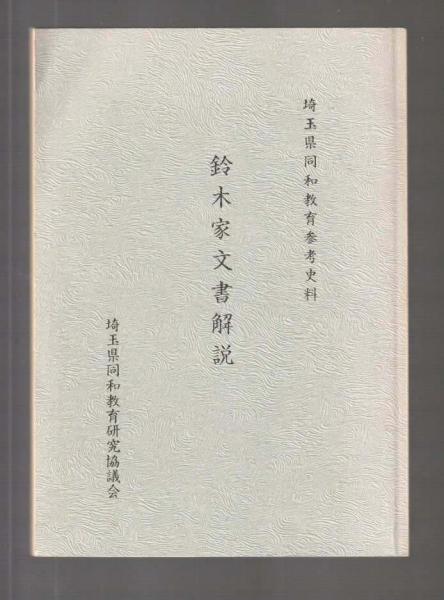 埼玉県同和教育参考史料
鈴木家文書解説
埼玉県同和教育研究協議会